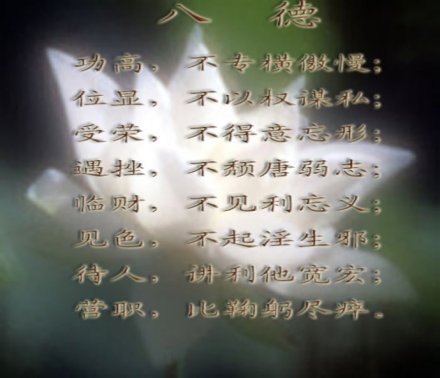 八 德
功高，不专横傲慢；
位显，不以权谋私；
受荣，不得意忘形；
遇挫，不颓唐弱志；
临财，不见利忘义；
见色，不起淫生邪；
待人，讲利他宽宏；
营职，比鞠躬尽瘁。